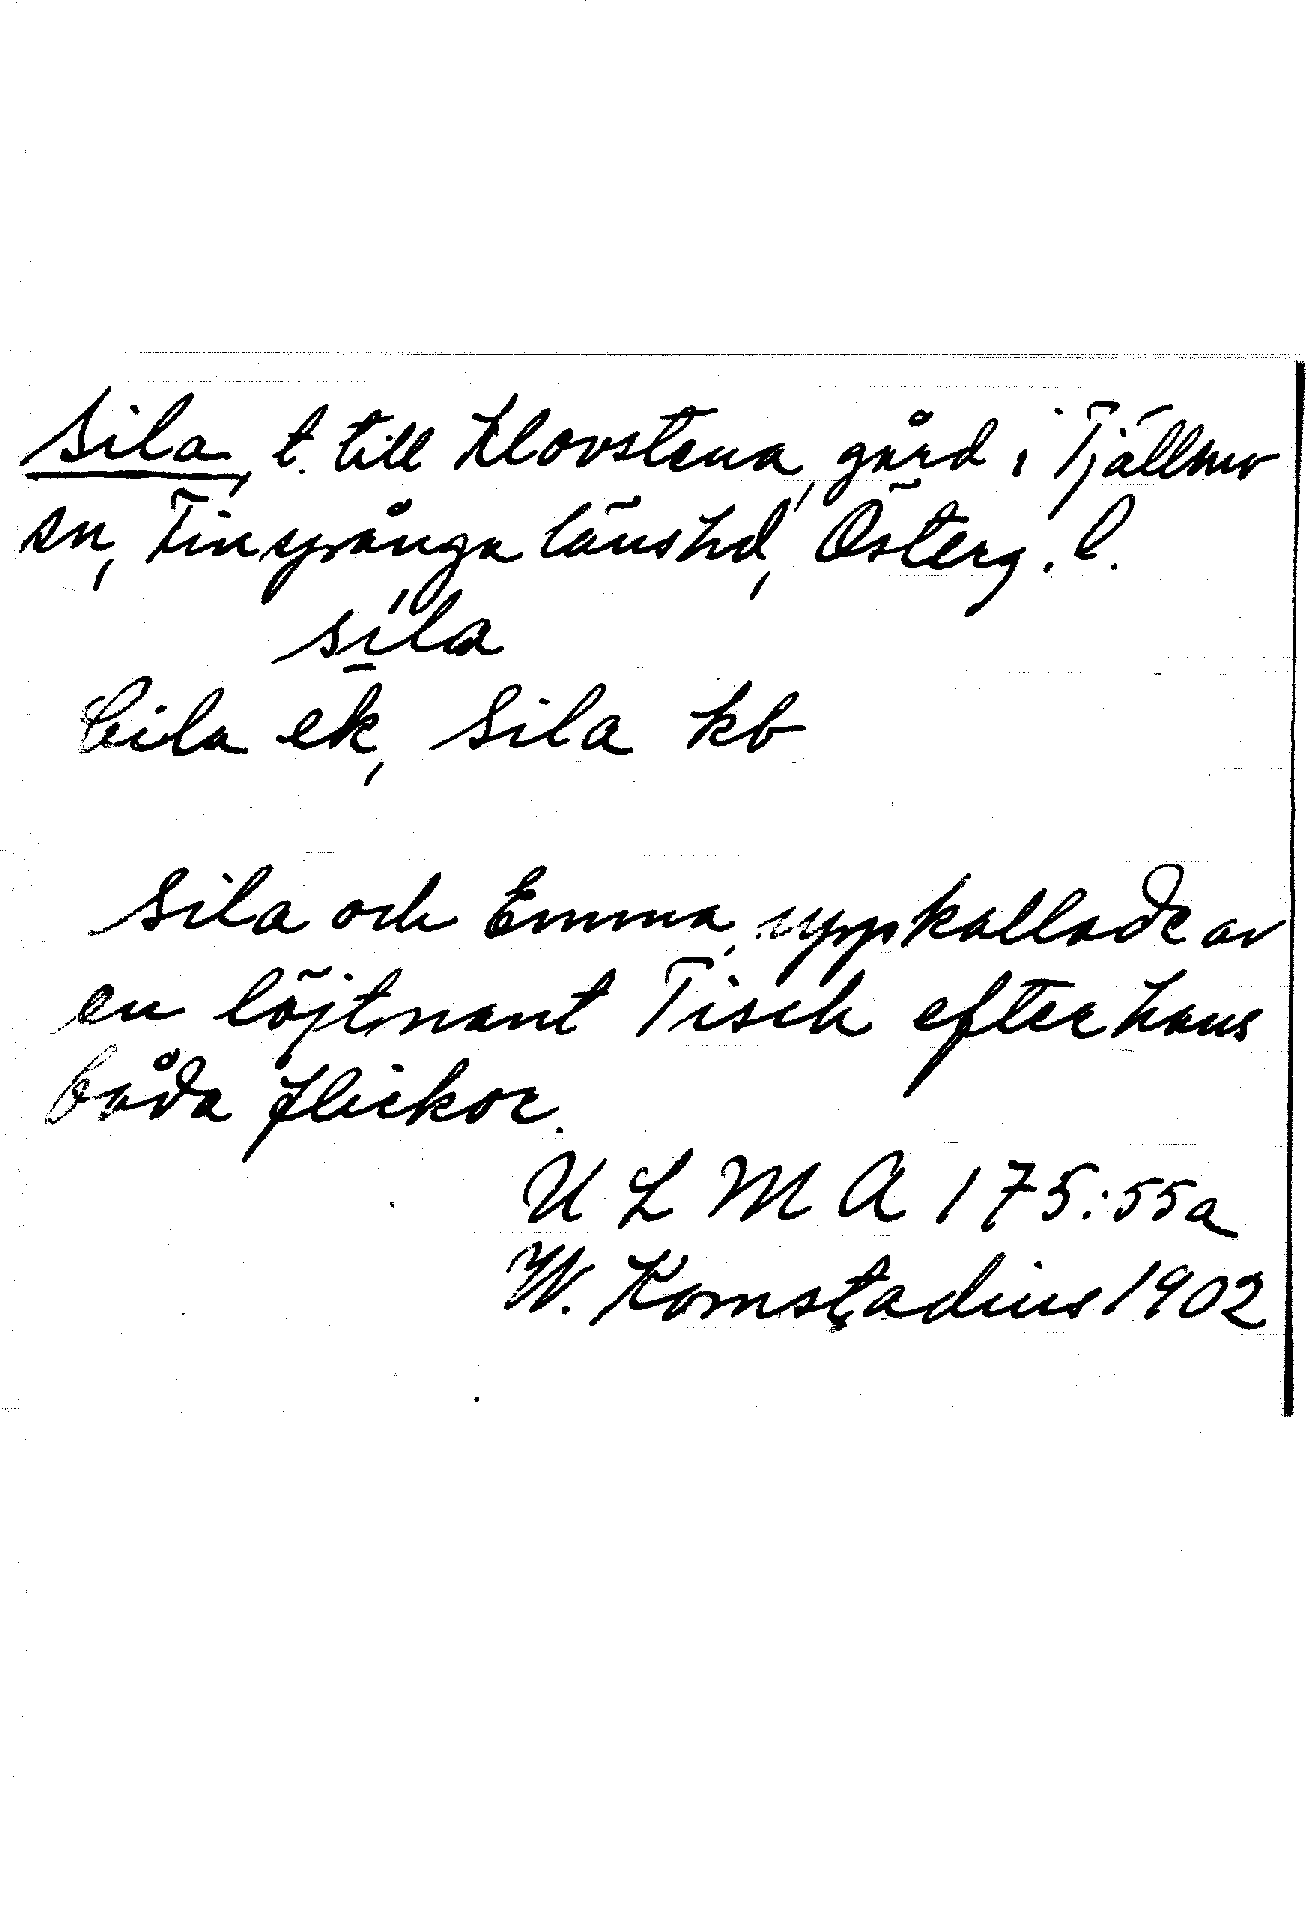 Sila, t. till Klovstena, gård i Tjällmo
sn, Finspånga länshd, Österg. l.
síla
Cila ek, Sila kb
Sila och Emma, uppkallade av
en löjtnant Tisch efter hans
båda flickor.
ULMA 175:55a
W. Komstadius 1902